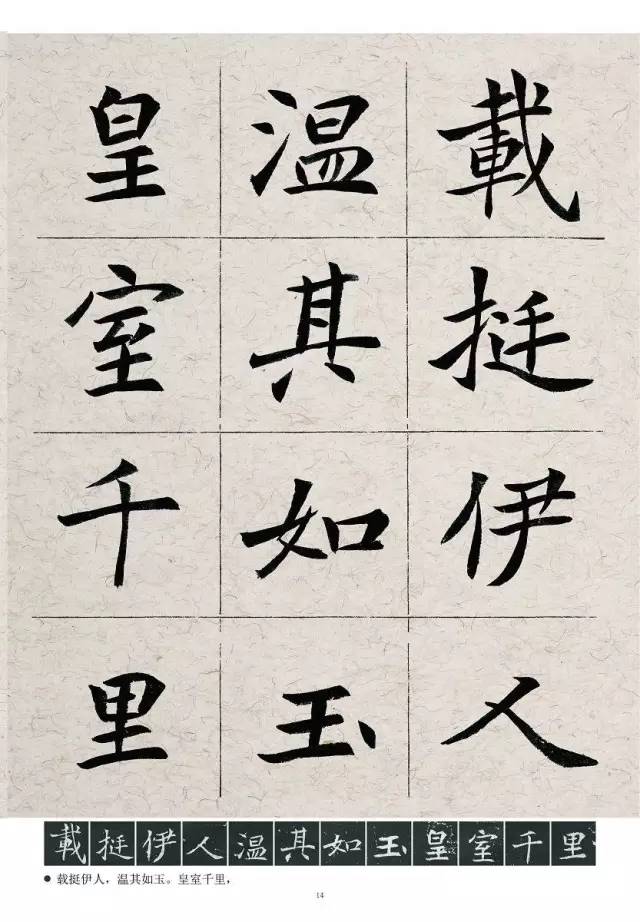 載挺伊人
温其如玉
皇室千里
載挺伊人温其如玉皇室千里
● 载挺伊人，温其如玉。皇室千里，
14